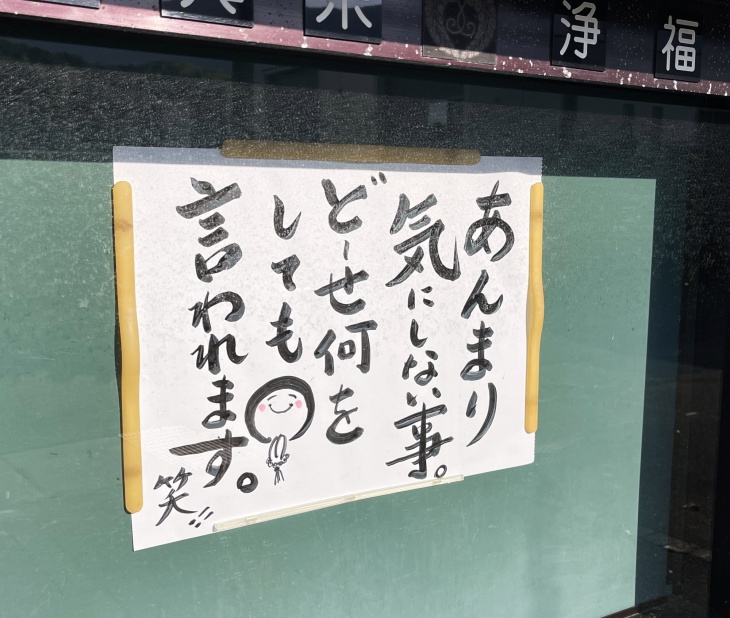 浄福
あんまり
気にしない事。
どーせ何を
しても
言われます。
笑!!